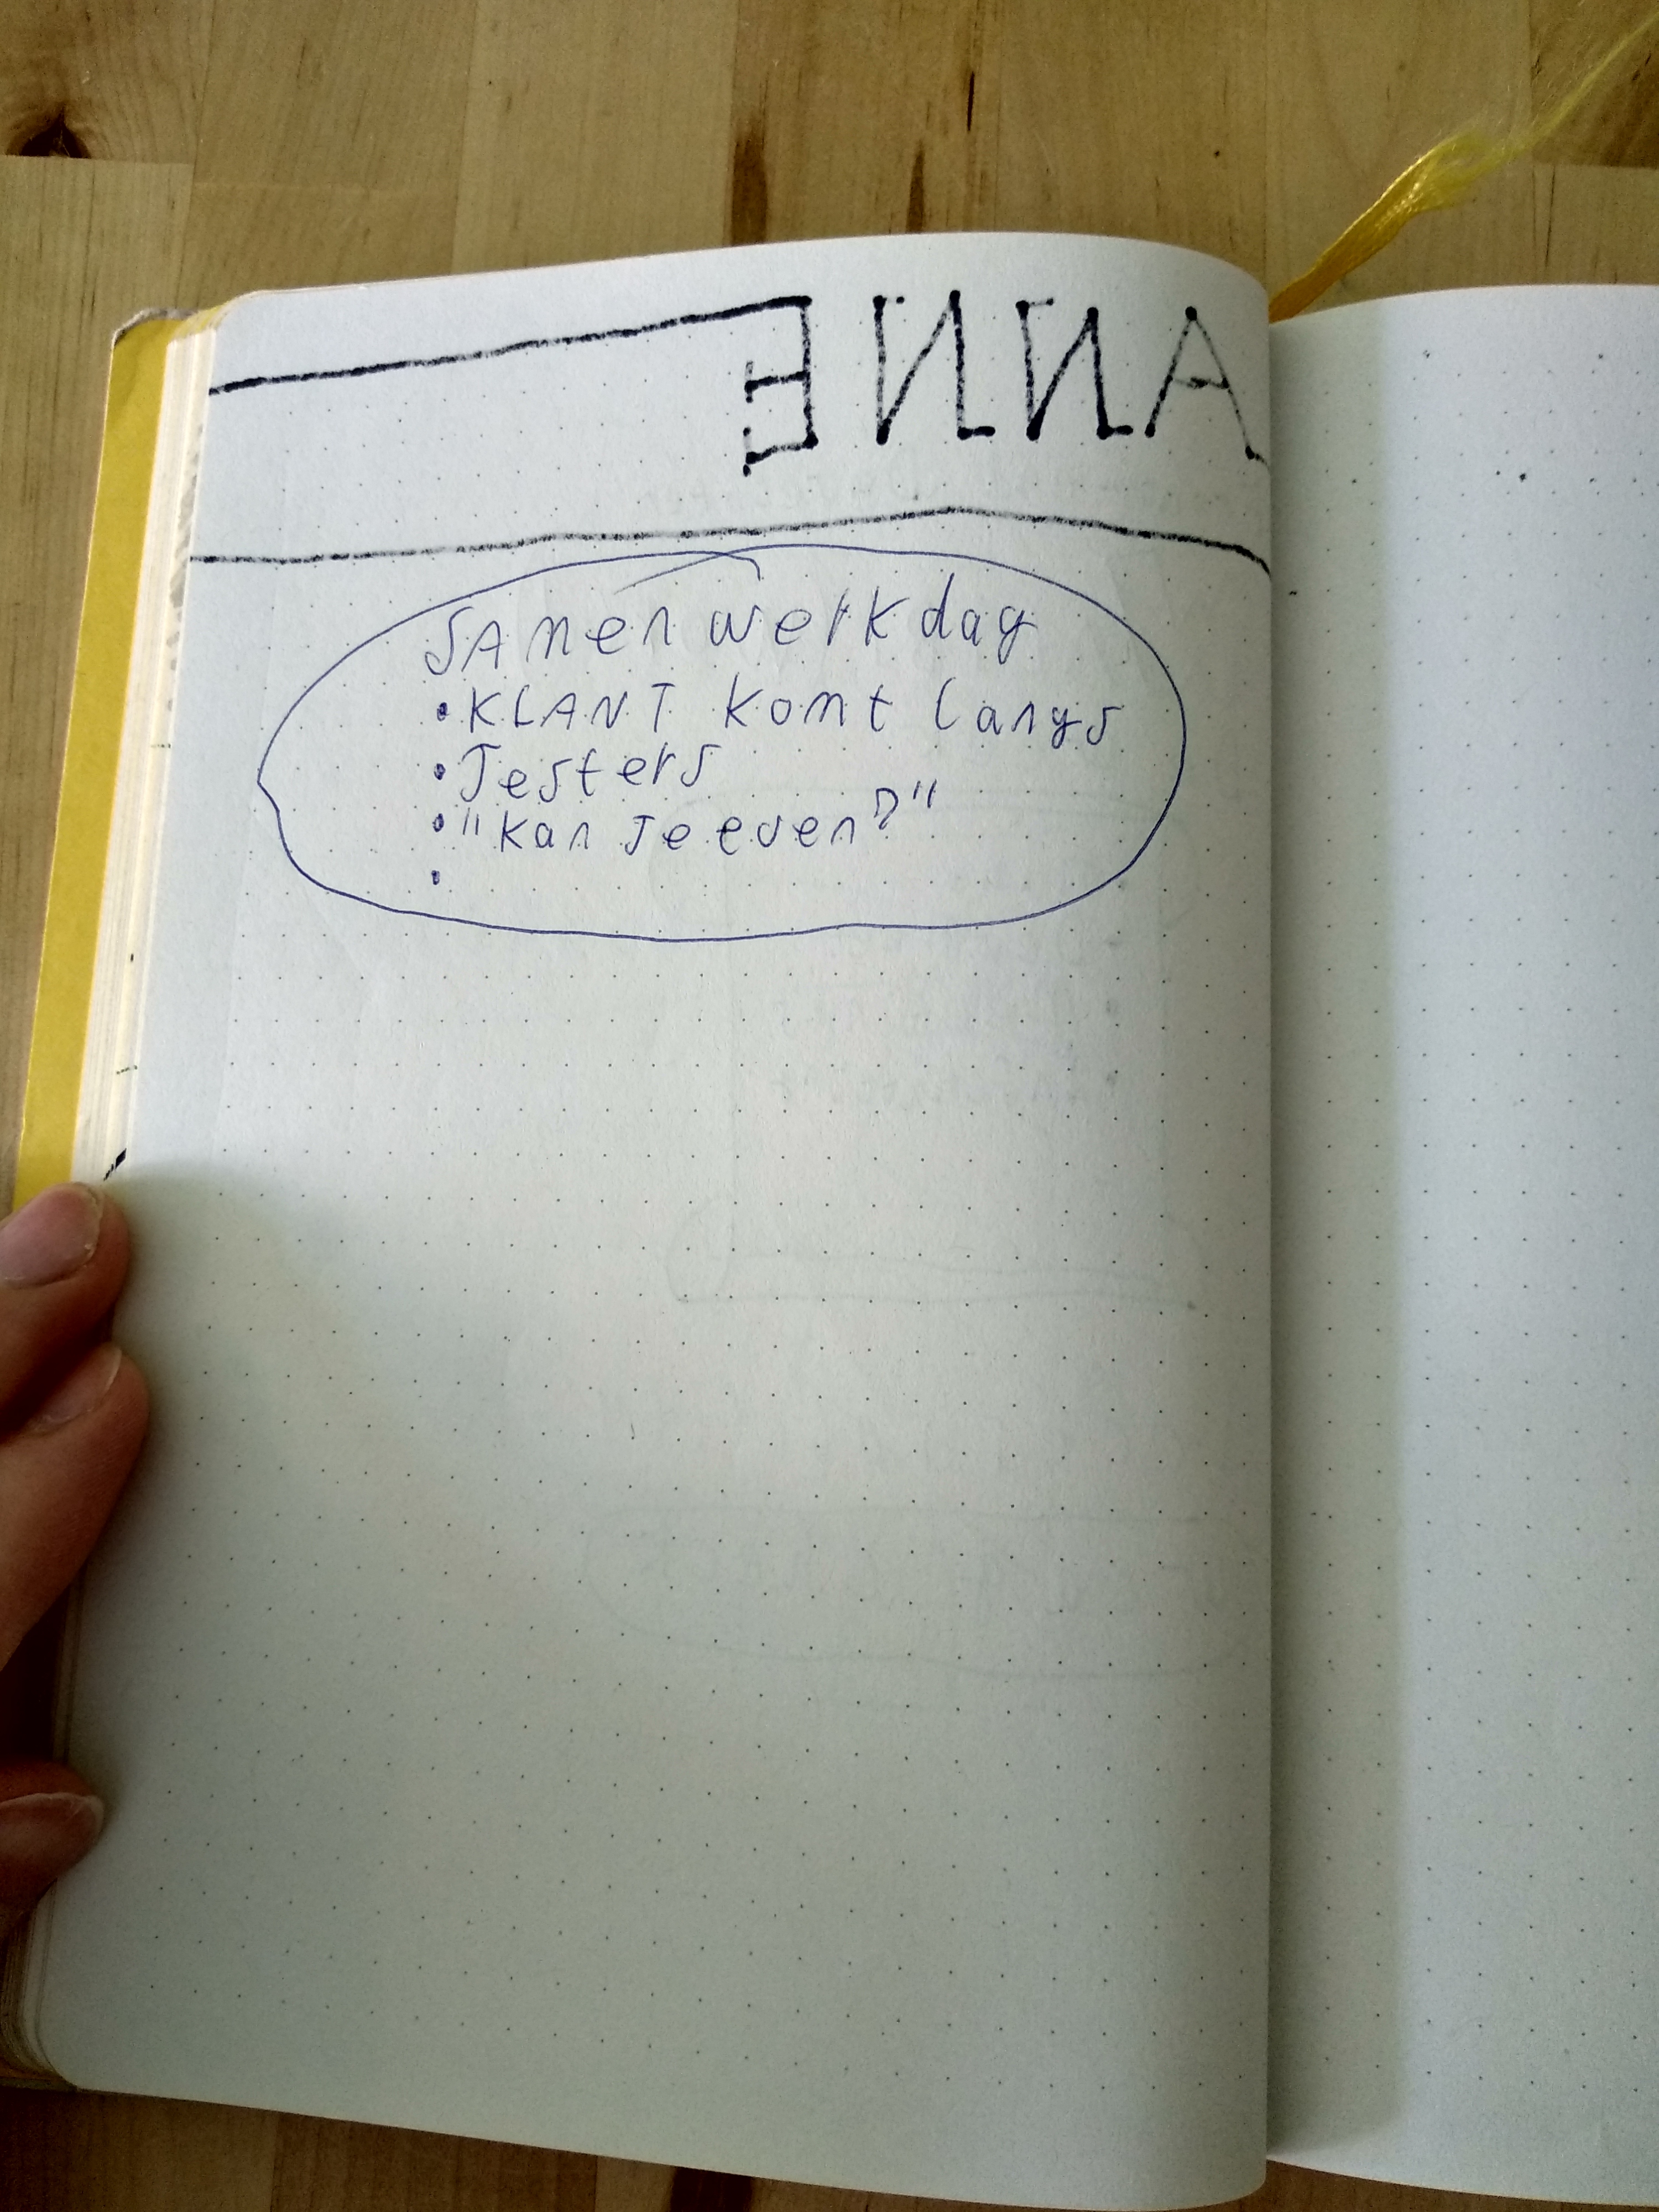 ANNE
Samenwerkdag
• KLANT komt langs
• Jesters
• "kan je even?"
•